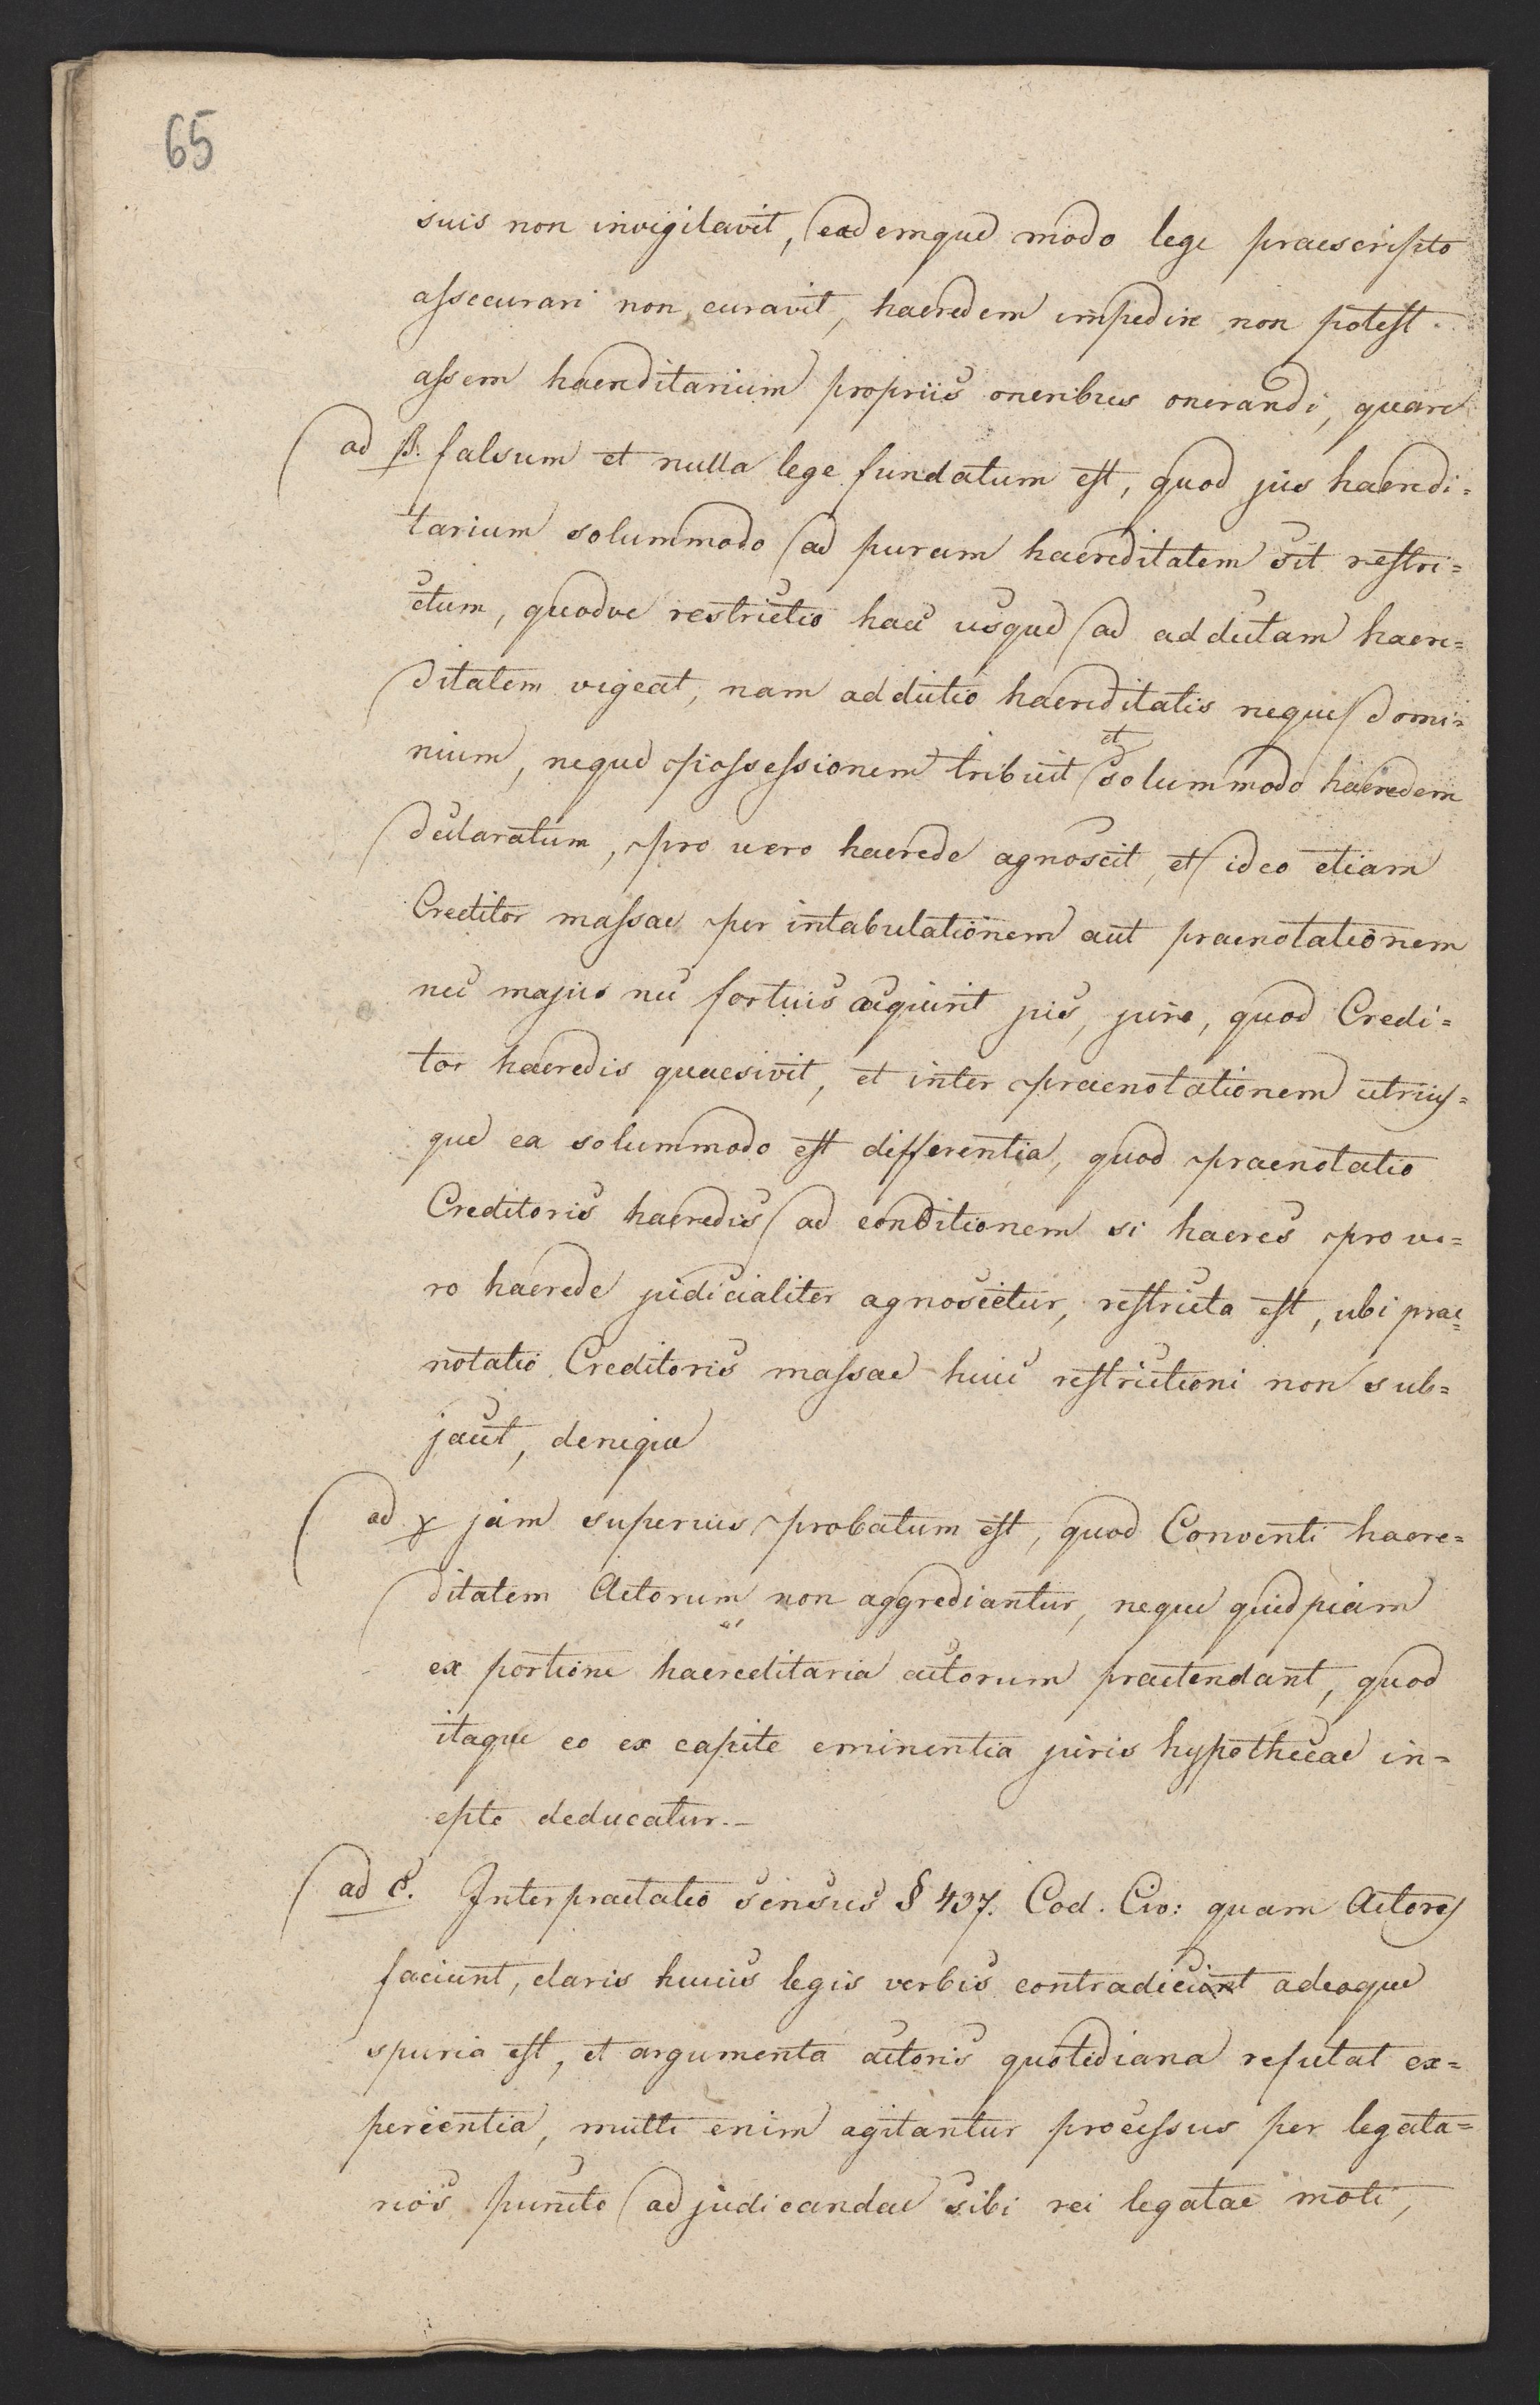 65
suis non invigilavit, eademque modo lege praescripto
assecurari non curavit, haeredem impedire non potest
assem haereditarium propriis oneribus onerandi, quare
ad β. falsum et nulla lege fundatum est, quod jus haeredi=
tarium solummodo ad puram haereditatem sit restri=
ctum, quodve restrictio haec usque ad addictam haere=
ditatem vigeat, nam addictio haereditatis neque domi=
nium, neque possessionem tribuit et solummodo haeredem
declaratum, pro vero haerede agnoscit, et ideo etiam
Creditor massae per intabulationem aut praenotationem
nec majus nec fortius acquirit jus, jure, quod Credi=
tor haeredis quaesivit, et inter praenotationem utrius=
que ea solummodo est differentia, quod praenotatio
Creditoris haeredis ad conditionem si haeres pro ve=
ro haerede judicialiter agnoscetur, restricta est, ubi prae=
notatio Creditoris massae huic restrictioni non sub=
jacet, denique
ad γ jam superius probatum est, quod Conventi haere=
ditatem Actorum non aggrediantur, neque quidpiam
ex portione haereditaria actorum praetendant, quod
itaque eo ex capite eminentia juris hypothecae in=
epte deducatur.–
ad C. Interpraetatio sensus § 437. Cod. Civ: quam Actores
faciunt, claris huius legis verbis contradicit adeoque
spuria est, et argumenta actoris quotidiana refutat ex=
perientia, multi enim agitantur processus per legata=
rios puncto adjudicandae sibi rei legatae moti,